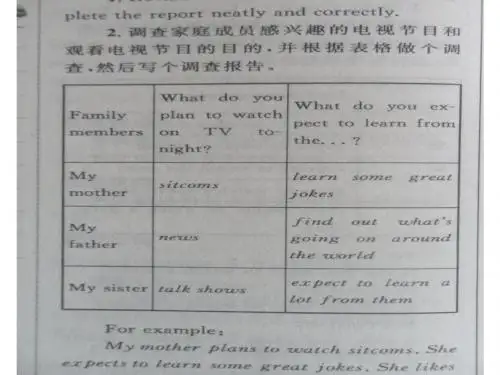 plete the report neatly and correctly.
2. 调查家庭成员感兴趣的电视节目和
观看电视节目的目的,并根据表格做个调
查,然后写个调查报告。
Family
members
What do you
plan to watch
on TV to-
night?
What do you ex-
pect to learn from
the. . . ?
My
mother
sitcoms
learn some great
jokes
My
father
news
find out what's
going on around
the world
My sister
talk shows
expect to learn a
lot from them
For example:
My mother plans to watch sitcoms. She
expects to learn some great jokes. She likes